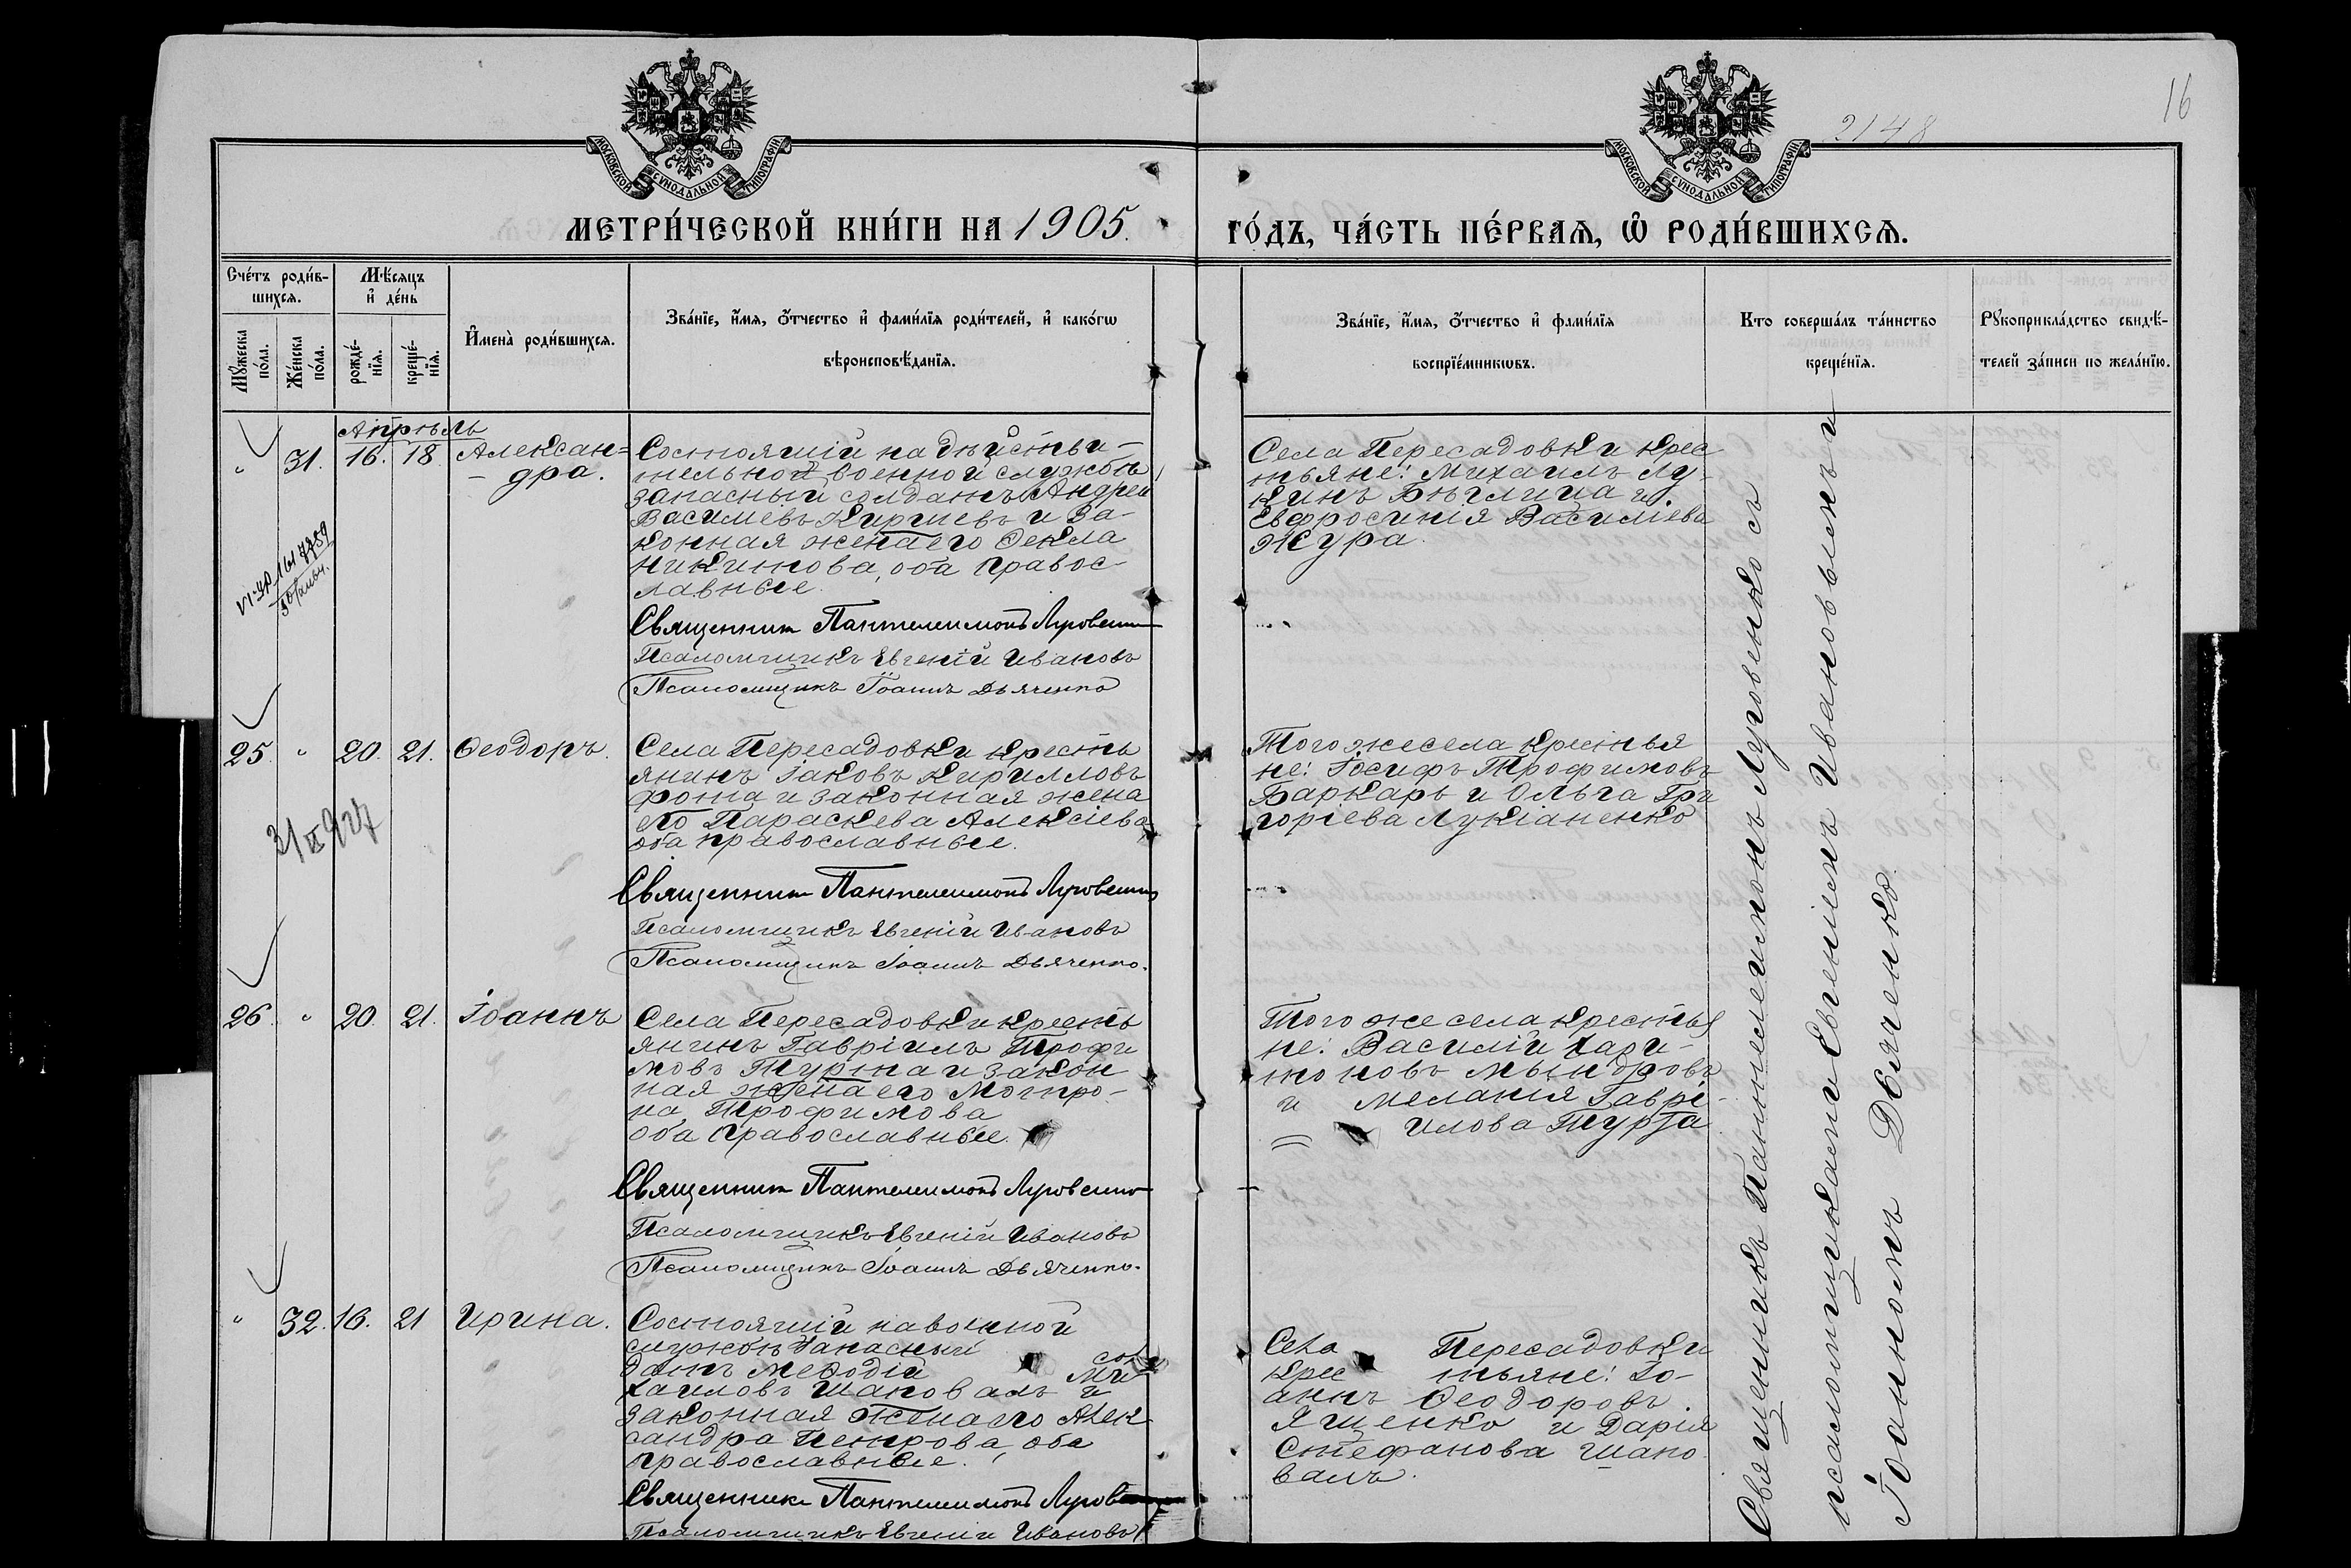 16
2148
МОСКОВСКОЙ СУНОДАЛЬНОЙ ТИПОГРАФІИ
МОСКОВСКОЙ СУНОДАЛЬНОЙ ТИПОГРАФІИ
МЕТРИ́ЧЕСКОЙ КНИ́ГИ НА 1905.
ГО́ДЪ, ЧА́СТЬ ПЕ́РВАѦ, Ѿ РОДИ́ВШИХСѦ.
Сче́тъ роди́в-
шихсѧ.
Мꙋ́жеска по́ла.
Же́нска по́ла.
Мѣ́сѧцъ
и҆ де́нь
рожде́-
нїѧ.
креще́-
нїѧ.
И҆мена̀ роди́вшихсѧ.
Зва́нїе, и҆́мѧ, ѻ҆́тчество и҆ фами́лїѧ роди́телей, и҆ како́гѡ
вѣроисповѣ́данїѧ.
Зва́нїе, и҆́мѧ, ѻ҆́тчество и҆ фами́лїѧ
воспрїе́мникѡвъ.
Кто соверша́лъ та́инство
креще́нїѧ.
Рꙋкоприкла́дство свидѣ́-
телей за́писи по жела́нїю.
Апрѣль
" 31. 16. 18 Алексан=
- дра.
Состоящій на дѣйстви-
тельной военной службѣ,
запасный солдатъ Андрей
Василіевъ Киршевъ и за-
конная жена его Ѳекла
Никитова, оба правос-
лавные.
Священник Пантелеимонъ Луговенко
Псаломщикъ Евгеній Ивановъ
Псаломщикъ Іоаннъ Дьяченко
Села Пересадовки крес
тьяне: Михаилъ Лу-
кинъ Бѣглица и
Евфросинія Василіева
Жура.
25. " 20. 21. Ѳеодоръ.
Села Пересадовки кресть
янинъ Іаковъ Кирилловъ
Фота и законная жена
его Параскева Алексіева
оба православные.
Священник Пантелеимонъ Луговенко
Псаломщикъ Евгеній Ивановъ
Псаломщикъ Іоаннъ Дьяченко.
Того же села крестья
не: Іосифъ Трофимовъ
Баркарь и Ольга Гри
горіева Лукіаненко
31/IX 927
26. " 20. 21. Іоаннъ
Села Пересадовки кресть
янинъ Гавріилъ Трофи
мовъ Турта и закон
ная жена его Матро-
на Трофимова
оба православные.
Священник Пантелеимонъ Луговенко
Псаломщикъ Евгеній Ивановъ
Псаломщикъ Іоаннъ Дьяченко.
Того же села крестья
не: Василій Хари-
тоновъ Мындровъ
и Меланія Гаврі-
илова Турта
" 32. 16. 21 Ирина.
Состоящій на военной
службѣ запасный сол
датъ Меѳодій Ми-
хаиловъ Шаповалъ и
законная жена его Алек
сандра Петрова, оба
православные.
Священник Пантелеимонъ Лугов
Псаломщикъ Евгеній Ивановъ
Села Пересадовки
крес тьяне: Іо-
аннъ Ѳеодоровъ
Ященко и Дарія
Стефанова Шапо
валъ.
Священникъ Пантелеимонъ Луговенко съ
псаломщиками Евгеніемъ Ивановымъ и
Іоанномъ Дьяченко.